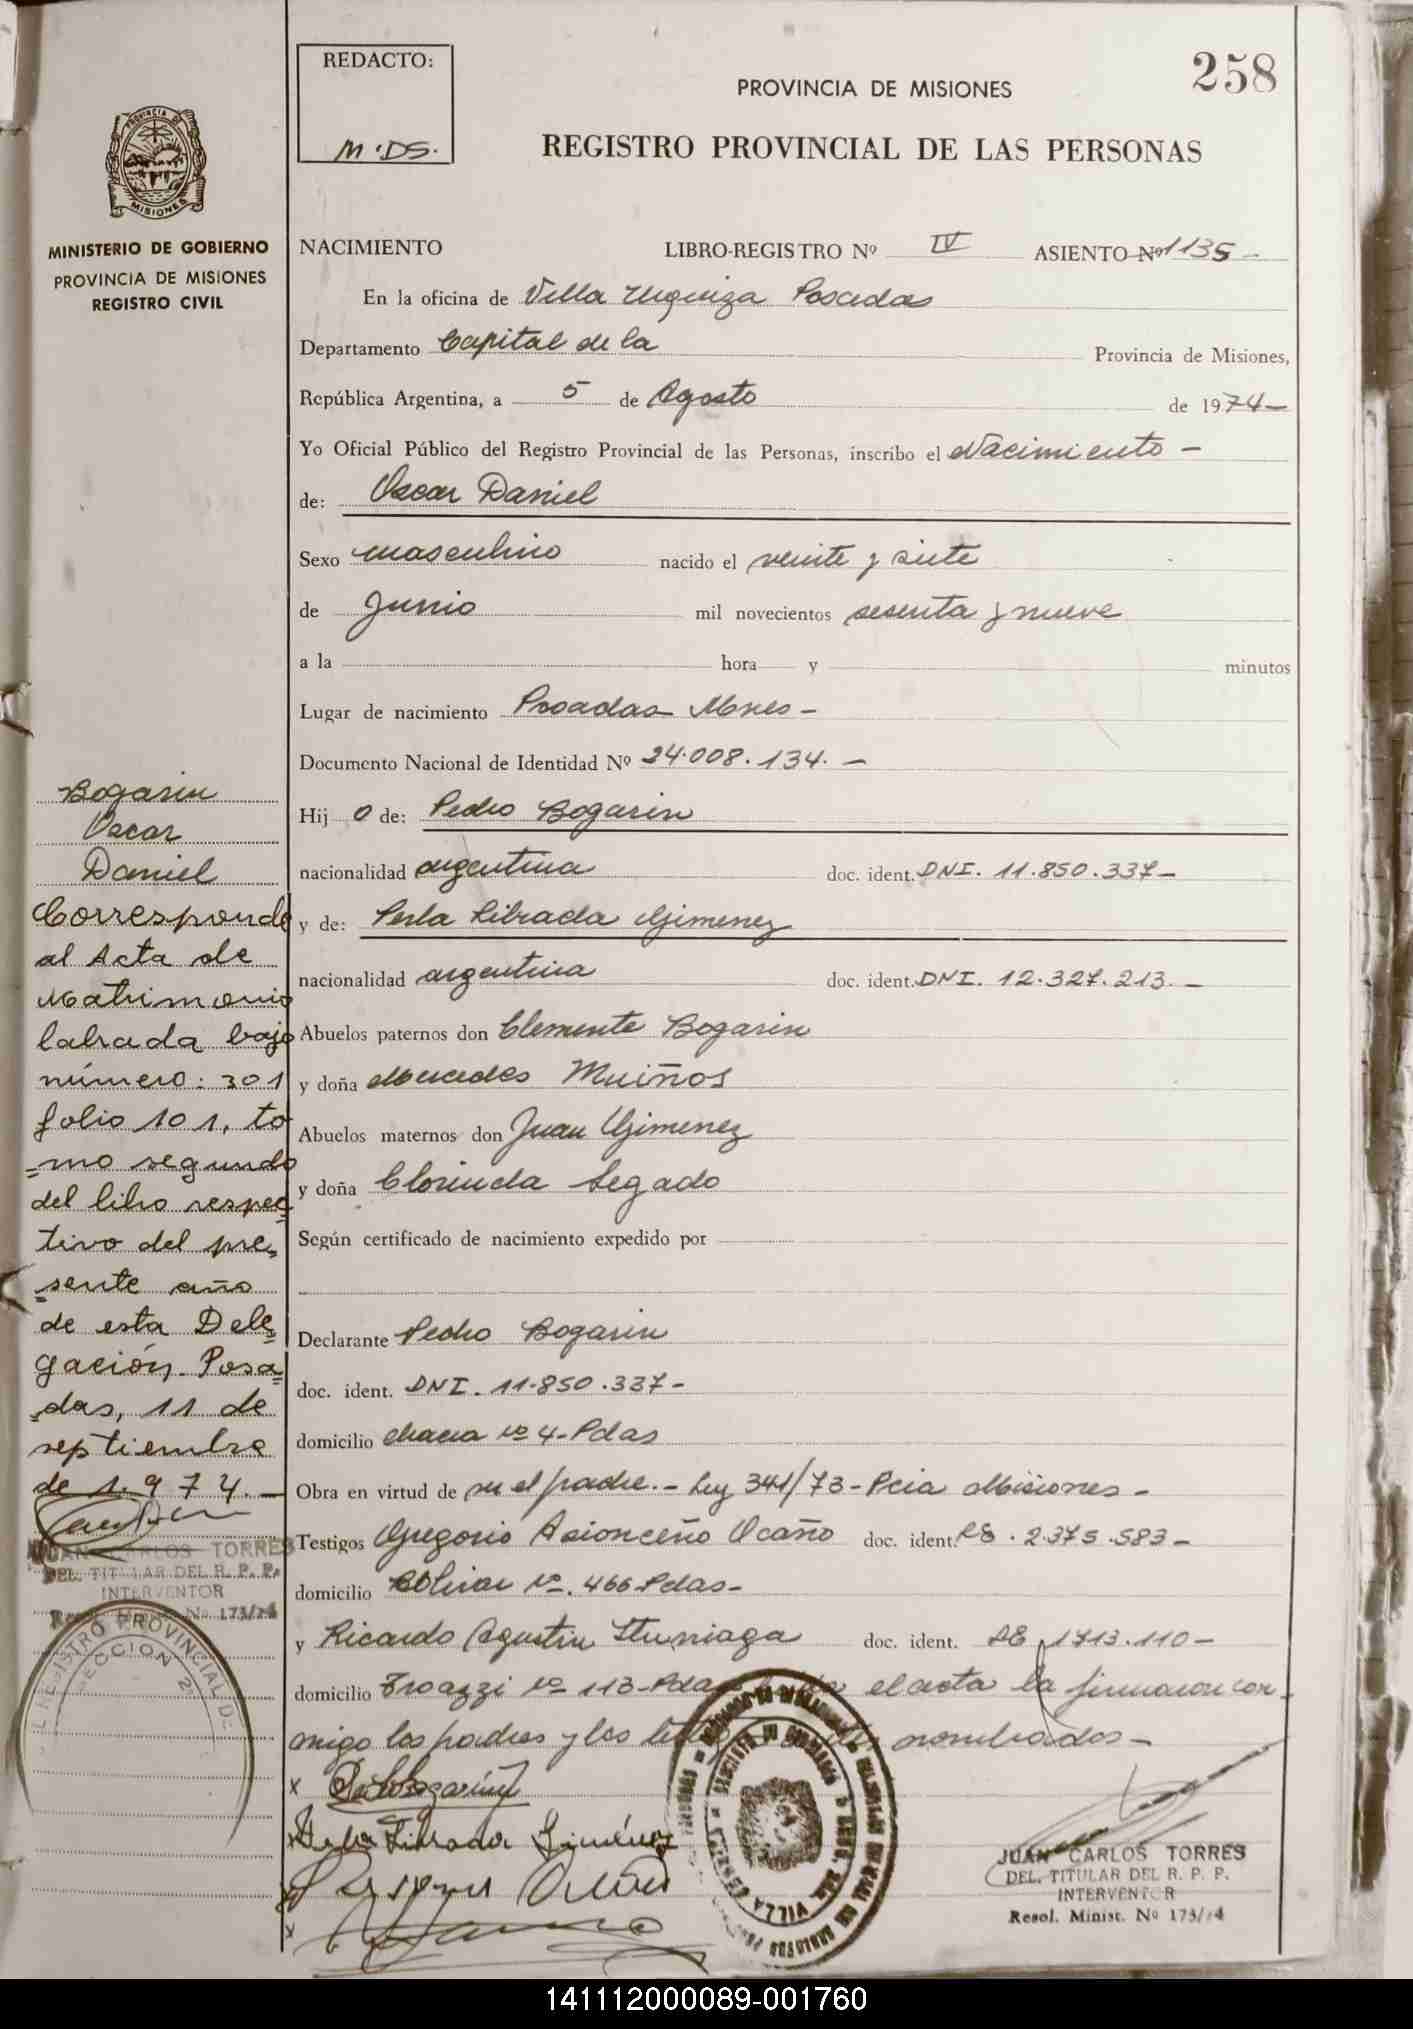 258
REDACTO:
M.DS.
PROVINCIA DE MISIONES
REGISTRO PROVINCIAL DE LAS PERSONAS
MISIONES
MINISTERIO DE GOBIERNO
PROVINCIA DE MISIONES
REGISTRO CIVIL
NACIMIENTO LIBRO-REGISTRO Nº IV ASIENTO Nº 1135 -
En la oficina de Villa Urquiza Posadas
Departamento Capital de la Provincia de Misiones,
República Argentina, a 5 de Agosto de 1974-
Yo Oficial Público del Registro Provincial de las Personas, inscribo el Nacimiento -
de: Oscar Daniel
Sexo masculino nacido el veinte y siete
de Junio mil novecientos sesenta y nueve
a la hora y minutos
Lugar de nacimiento Posadas Mnes -
Documento Nacional de Identidad Nº 24.008.134. -
Hij o de: Pedro Bogarin
nacionalidad argentina doc. ident. DNI. 11.850.337-
y de: Perla Librada Gimenez
nacionalidad argentina doc. ident. DNI. 12.327.213. -
Abuelos paternos don Clemente Bogarin
y doña Mercedes Muiños
Abuelos maternos don Juan Gimenez
y doña Clorinda Segado
Según certificado de nacimiento expedido por
Declarante Pedro Bogarin
doc. ident. DNI. 11.850.337-
domicilio chacra nº 4-Pdas
Obra en virtud de ser el padre.- Ley 341/73-Pcia Misiones -
Testigos Gregorio Asionceño Ocaño doc. ident. 2.375.583-
domicilio Bolivar Nº. 466 Pdas-
y Ricardo Agustin Ituniaga doc. ident. 1713.110-
domicilio nº 113-Pdas el acta la firmaron con
migo los padres y los nombrados -
Bogarin
Oscar
Daniel
Corresponde
al Acta de
Matrimonio
labrada bajo
número: 301
folio 101, to
=mo segundo
del libro respec
tivo del pre=
=sente año
de esta Dele=
gación. Posa=
=das, 11 de
septiembre
de 1.974. -
JUAN CARLOS TORRES
DEL. TITULAR DEL R. P. P.
INTERVENTOR
Resol. Minist. Nº 173/74
REGISTRO PROVINCIAL DE
SECCION 2
x Bogarin
x Perla Librada Giménez
x
VILLA
JUAN CARLOS TORRES
DEL. TITULAR DEL R. P. P.
INTERVENTOR
Resol. Minist. Nº 173/74
141112000089-001760